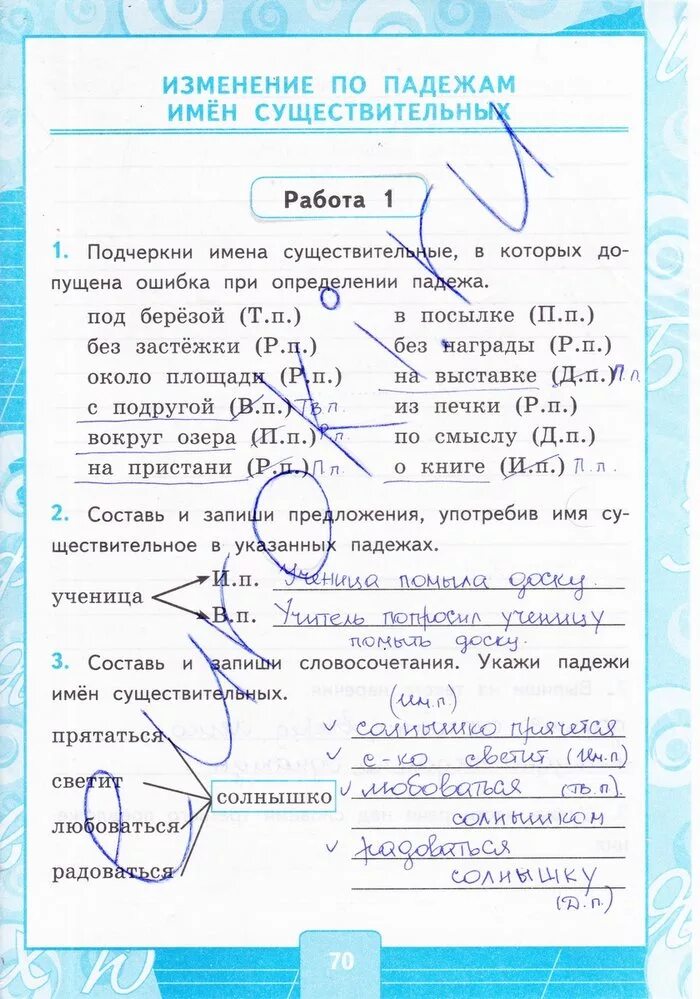 ИЗМЕНЕНИЕ ПО ПАДЕЖАМ
ИМЁН СУЩЕСТВИТЕЛЬНЫХ
Работа 1
1. Подчеркни имена существительные, в которых до-
пущена ошибка при определении падежа.
под берёзой (Т.п.)
без застёжки (Р.п.)
около площади (Р.п.)
с подругой (В.п.) Тв.п.
вокруг озера (П.п.) Р.п.
на пристани (Р.п.) П.п.
в посылке (П.п.)
без награды (Р.п.)
на выставке (Д.п.) П.п.
из печки (Р.п.)
по смыслу (Д.п.)
о книге (И.п.) П.п.
2. Составь и запиши предложения, употребив имя су-
ществительное в указанных падежах.
ученица
И.п. Ученица помыла доску.
В.п. Учитель попросил ученицу
помыть доску.
3. Составь и запиши словосочетания. Укажи падежи
имён существительных.
прятаться
светит
любоваться
радоваться
солнышко
(Им.п.)
солнышко прячется
с-ко светит (Им.п)
любоваться (Тв.п).
солнышком
радоваться
солнышку
(Д.п.)
70